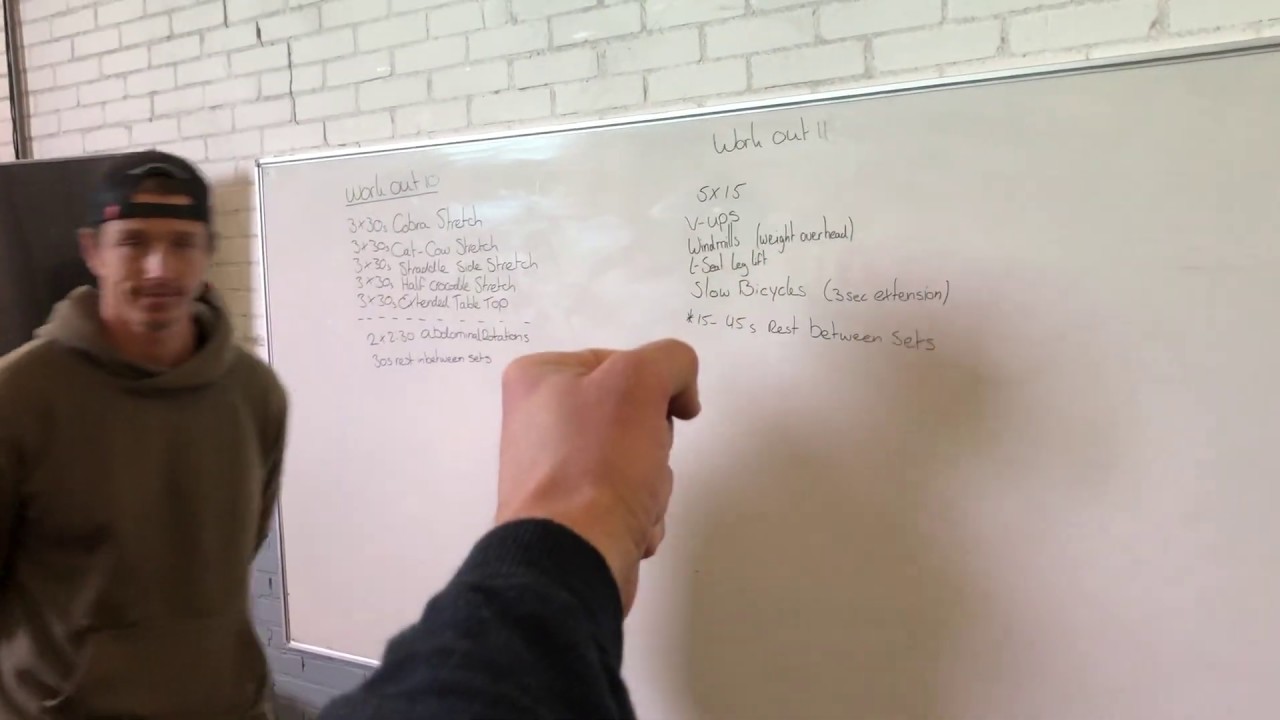 Work out 10
3x30s Cobra Stretch
3x30s Cat-Cow Stretch
3x30s Straddle Side Stretch
3x30s Half crocodile Stretch
3x30s Extended Table Top
2x2:30 abdominal Rotations
30s rest inbetween sets
Work out 11
5x15
V-ups
Windmills (weight overhead)
L-Seat Leg lift
Slow Bicycles (3sec extension)
*15-45s Rest between Sets